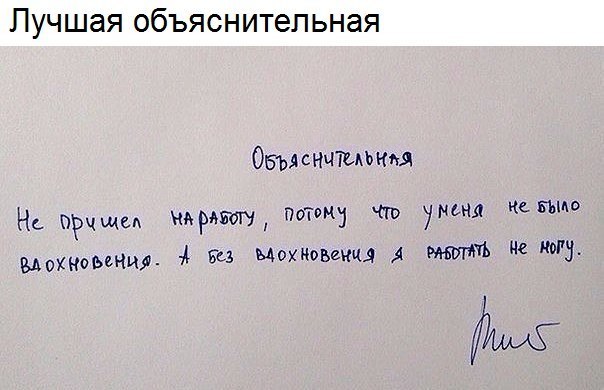 Лучшая объяснительная
Объяснительная
Не пришел на работу, потому что у меня не было
вдохновения. А без вдохновения я работать не могу.